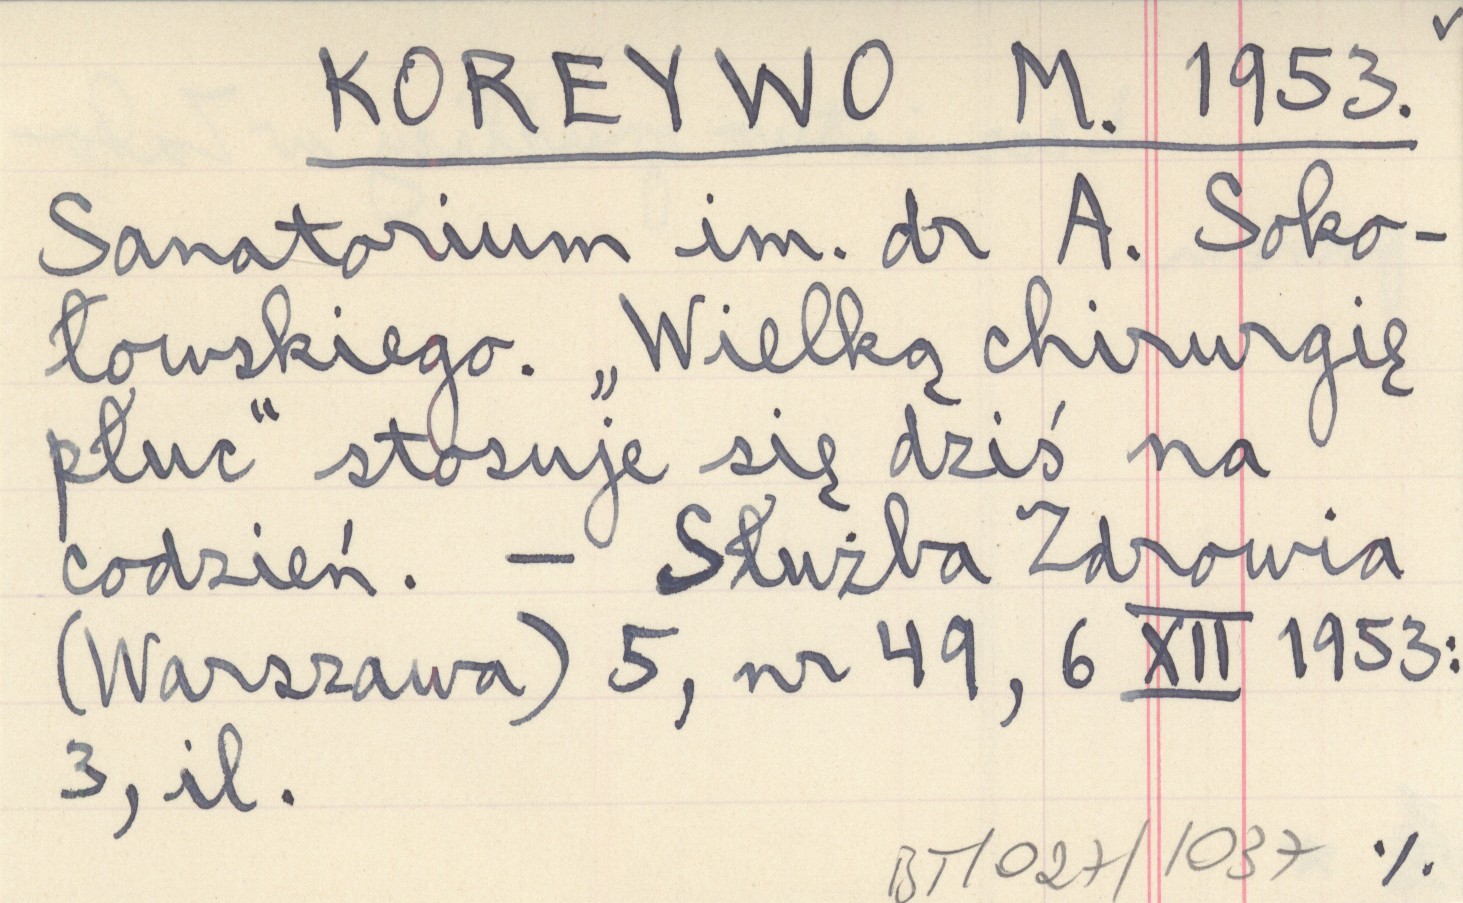 KOREYWO M. 1953.
Sanatorium im. dr A. Soko-
łowskiego. „Wielką chirurgię
płuc“ stosuje się dziś na
codzień. — Służba Zdrowia
(Warszawa) 5, nr 49, 6 XII 1953:
3, il.
BT/027/1037 ./.